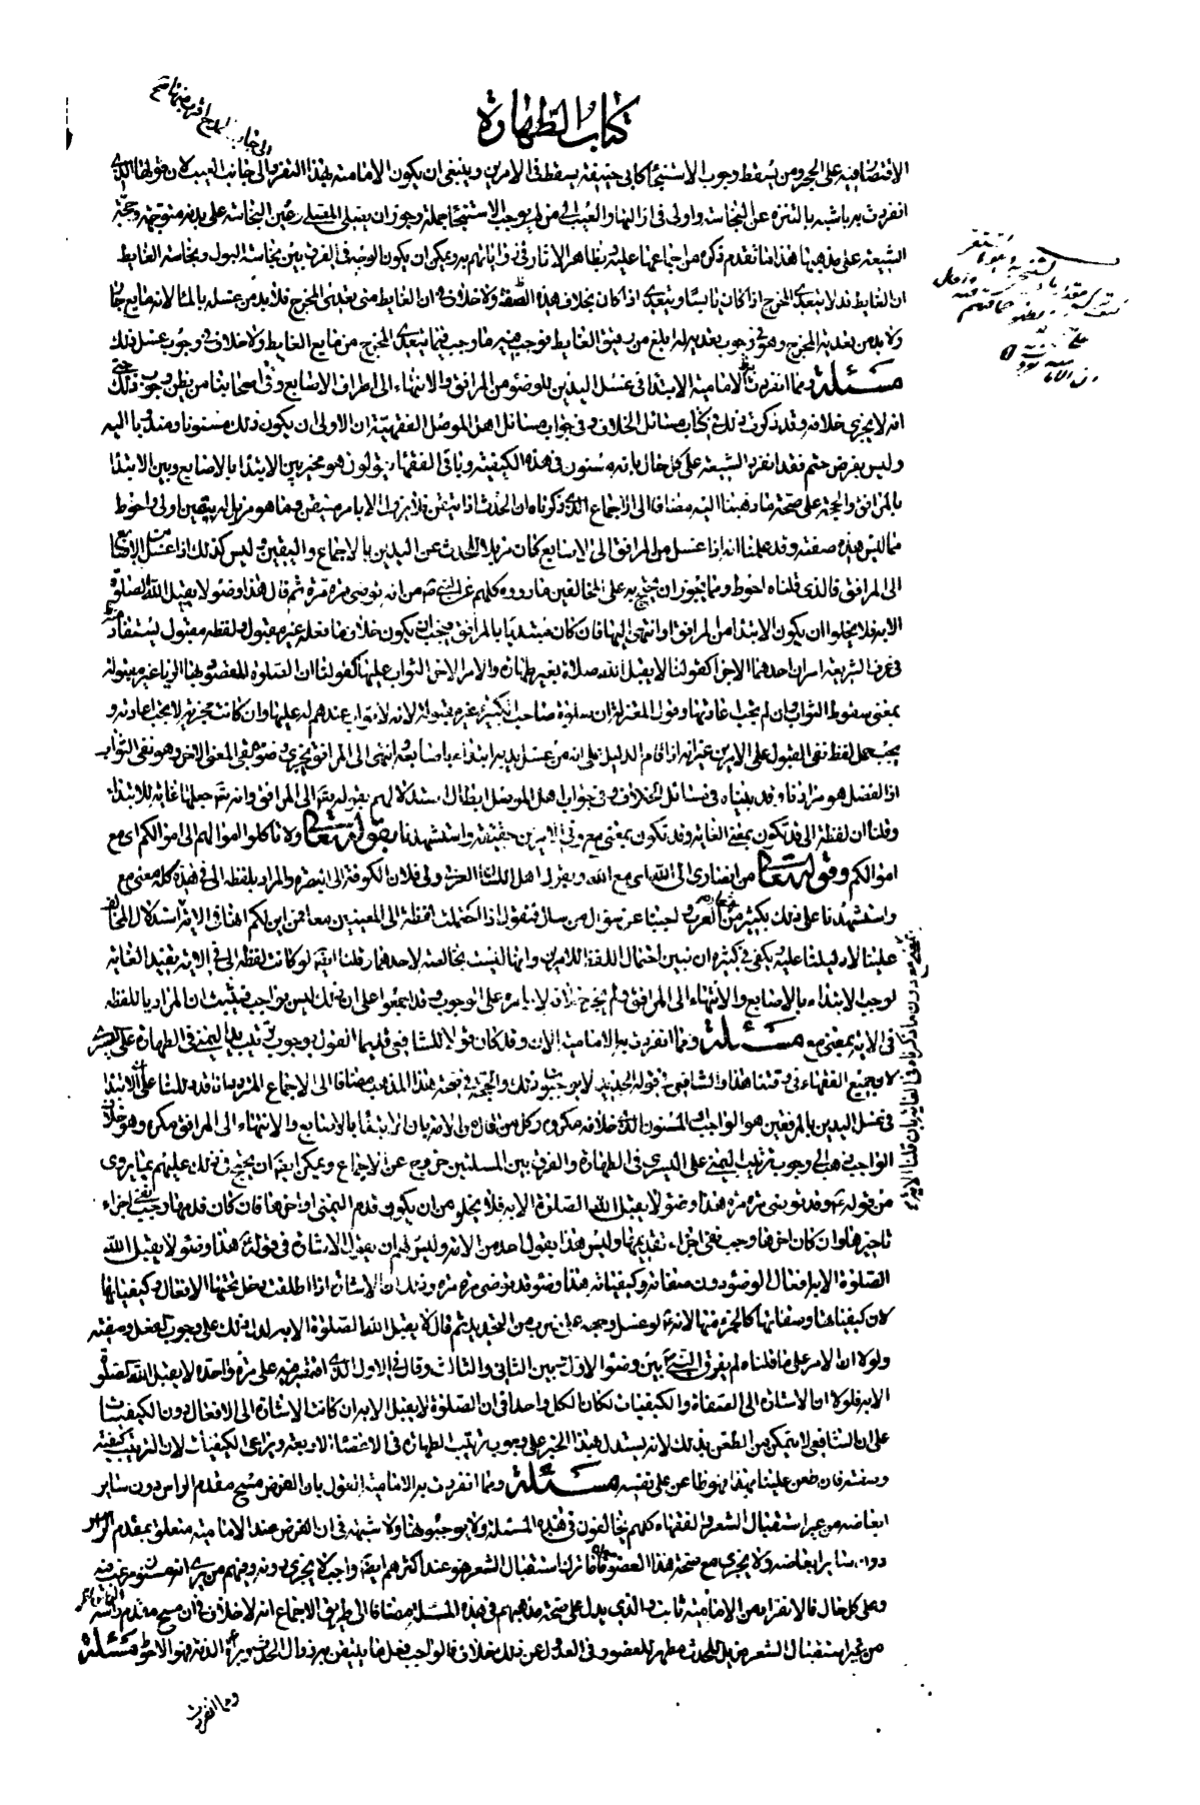 كتاب الطهارة
الاقتصار فيه على الحجر ومن يسقط وجوب الاستنجاء كابي حنيفة يسقط في الامرين وينبغي ان يكون الامامية بهذا التفرد الى جانب العيب لان قولها الذي
انفردت به اشبه بالتنزه عن النجاسة واولى في ازالتها والعيب الى من لم يوجب الاستنجاء جملة وجوز ان يصلي المصلي وعين النجاسة على بدنه متوجه وحجة
الشيعة على مذهبها هذا ما تقدم ذكره من اجماعها عليه وتظاهر الاثار في رواياتهم به ويمكن ان يكون الوجه في الفرق بين نجاسة البول ونجاسة الغايط
ان الغايط قد لا يتعدى المخرج اذا كان يابسا ويتعدى اذا كان بخلاف هذه الصفة ولا خلاف في ان الغايط متى تعدى المخرج فلا بد من غسله بالماء لانه مايع جار
ولا بد من تعديه المخرج وهو في وجوب تعديه له ابلغ من رقيق الغايط فوجب فيه ما وجب فيما يتعدى المخرج من مايع الغايط ولا خلاف في وجوب غسل ذلك
مسئلة ومما انفردت به الامامية الابتداء في غسل اليدين للوضوء من المرافق والانتهاء الى اطراف الاصابع وفي اصحابنا من يظن وجوب ذلك حتى
انه لا يجزي خلافه وقد ذكرت ذلك في كتاب مسائل الخلاف وفي جواب مسائل اهل الموصل الفقهية ان الاولى ان يكون ذلك مسنونا ومندوبا اليه
وليس بفرض حتم فقد انفرد الشيعة على كل حال بانه مسنون في هذه الكيفية وباقي الفقهاء يقولون هو مخير بين الابتداء بالاصابع وبين الابتداء
بالمرافق والحجة على صحة ما ذهبنا اليه مضافا الى الاجماع الذي ذكرناه ان الحدث اذا تيقن فلا يزول الا بامر متيقن وما هو مزيل له بيقين اولى واحوط
مما ليس هذه صفته وقد علمنا انه اذا غسل من المرافق الى الاصابع كان مزيلا للحدث عن اليدين بالاجماع واليقين وليس كذلك اذا غسل من الاصابع
الى المرافق فالذي قلناه احوط ومما يجوز ان يحتج به على المخالفين ما رووه كلهم عن النبي ص من انه توضى مرة مرة ثم قال هذا وضوء لا يقبل الله الصلوة
الا به فلا يخلوا ان يكون الابتداء من المرافق او انتهى اليها فان كان مبتديا بالمرافق فيجب ان يكون خلاف ما فعله غير مقبول ولفظه مقبول يستفاد بها
في عرف الشريعة امران احدهما الاجزاء كقولنا لا يقبل الله صلاة بغير طهارة والامر الاخر الثواب عليها كقولنا ان الصلوة المقصود بها الريا غير مقبولة
بمعنى سقوط الثواب وان لم يجب اعادتها وقول المعتزلة ان صلوة صاحب الكبيرة غير مقبولة لانه لا ثواب عندهم له عليها وان كانت مجزية لا يجب اعادته و
يجب حمل لفظ نفي القبول على الامرين غير انه اذا قام الدليل على انه من غسل يديه ابتداء باصابعه وانتهى الى المرافق يجزي وضوئه بقي المعنى الاخر وهو نفي الثواب
اذ الفضل هو مرادنا وقد بيناه في مسائل الخلاف وفي جواب اهل الموصل ابطال استدلالهم بقوله تعالى الى المرافق وانه تعالى جعلها غاية للابتداء
وقلنا ان لفظة الى قد تكون بمعنى الغاية وقد تكون بمعنى مع وفي الامرين حقيقة واستشهدنا بقوله تعالى ولا تاكلوا اموالهم الى اموالكم اي مع
اموالكم وقوله تعالى من انصاري الى الله اي مع الله ويقول اهل اللسان العرب ولي فلان الكوفة الى البصرة والمراد بلفظة الى في هذه كله معنى مع
واستشهدنا على ذلك بكثير من اشعار العرب واجبنا عن سؤال من سال فنقول اذا احتملت لفظة الى المعنيين معا فمن اين لكم انها في الاية
علينا لا دليلنا عليه يكفي في كثيره ان نبين احتمال اللفظة للامرين وانها ليست بخالصة لاحدهما وقلنا ايضا لو كانت لفظة الى في الاية يفيد الغاية
لوجب الابتداء بالاصابع والانتهاء الى المرافق ولم يجز خلافه لان امره على الوجوب وقد اجمعوا على ان ذلك ليس بواجب فيثبت ان المراد باللفظة
في الاية بمعنى مع مسئلة ومما انفردت به الامامية الان وقد كان قولا للشافعي قديما القول بوجوب ترتيب اليد اليمنى في الطهارة على اليسرى
لان جميع الفقهاء في وقتنا هذا والشافعي في قوله الجديد لا يوجبون ذلك والحجة في صحة هذا المذهب مضافا الى الاجماع المتردد انا قد دللنا على ان الابتداء
في غسل اليدين بالمرفقين هو الواجب او المسنون الذي خلافه مكروه وكل من قال من الامة بان الابتداء بالاصابع والانتهاء الى المرافق مكروه وهو خلاف
الواجب ذهب الى وجوب ترتيب اليمنى على اليسرى في الطهارة والفرق بين المسئلتين خروج عن الاجماع ويمكن ايضا ان يحتج في ذلك عليهم بما يروى
من قوله ع وقد توضى مرة مرة هذا وضوء لا يقبل الله الصلوة الا به فلا يخلو من ان يكون قدم اليمنى او اخرها فان كان قدمها وجب نفي اجزاء
تاخيرها وان كان اخرها وجب نفي اجزاء تقديمها وليس هذا بقول احد من الامة وليس لهم ان يقولوا الاشارة في قوله ع هذا وضوء لا يقبل الله
الصلوة الا به افعال الوضوء دون صفاته وكيفياته هذا وضوء قد توضى مرة مرة وذلك ان الاشارة اذا اطلقت دخل تحتها الافعال وكيفياتها
لان كيفياتها وصفاتها كالجزء منها الا ترى انه لو غسل وجهه على ضرب من التحديد ثم قال لا يقبل الله الصلوة الا به لدل ذلك على وجوب الفعل وصفته
ولولا ان الامر على ما قلناه لم يفرق النبي بين وضوئه الاول وبين الثاني والثالث وقال في الاول الذي اقتصر فيه على مرة واحدة لا يقبل الله الصلوة
الا به فلولا ان الاشارة الى الصفات والكيفيات لكان الكل واحدا في ان الصلوة لا يقبل الا به ان كانت الاشارة الى الافعال دون الكيفيات
على ان الشافعي لا يتمكن من الطعن بذلك لانه يستدل بهذا الخبر على وجوب ترتيب الطهارة في الاعضاء الاربعة ويراعي الكيفيات لان الترتيب كيفية
وصفة فان طعن علينا بهذا فهو طاعن على نفسه مسئلة ومما انفردت به الامامية القول بان الفرض مسح مقدم الراس دون ساير
ابعاضه من غير استقبال الشعر والفقهاء كلهم يخالفون في هذه المسئلة ولا يوجبونها ولا شبهة في ان الفرض عند الامامية متعلق بمقدم الراس
دون ساير ابعاضه ولا يجزي مع صحة هذا العضو فاما ترك استقبال الشعر فهو عند اكثرهم ايضا واجب لا يجزي دونه وفيهم من يرى انه مسنون مرغب فيه
وعلى كل حال فالانفراد من الامامية ثابت والذي يدل على صحة مذهبهم في هذه المسئلة مضافا الى طريق الاجماع انه لا خلاف في ان مسح مقدم راسه
من غير استقبال الشعر مزيل للحدث مطهر للعضو وفي العدول عن ذلك خلاف فالواجب فعل ما يتيقن به زوال الحدث وبراءة الذمة فهو الاحوط مسئلة
ومما انفردت